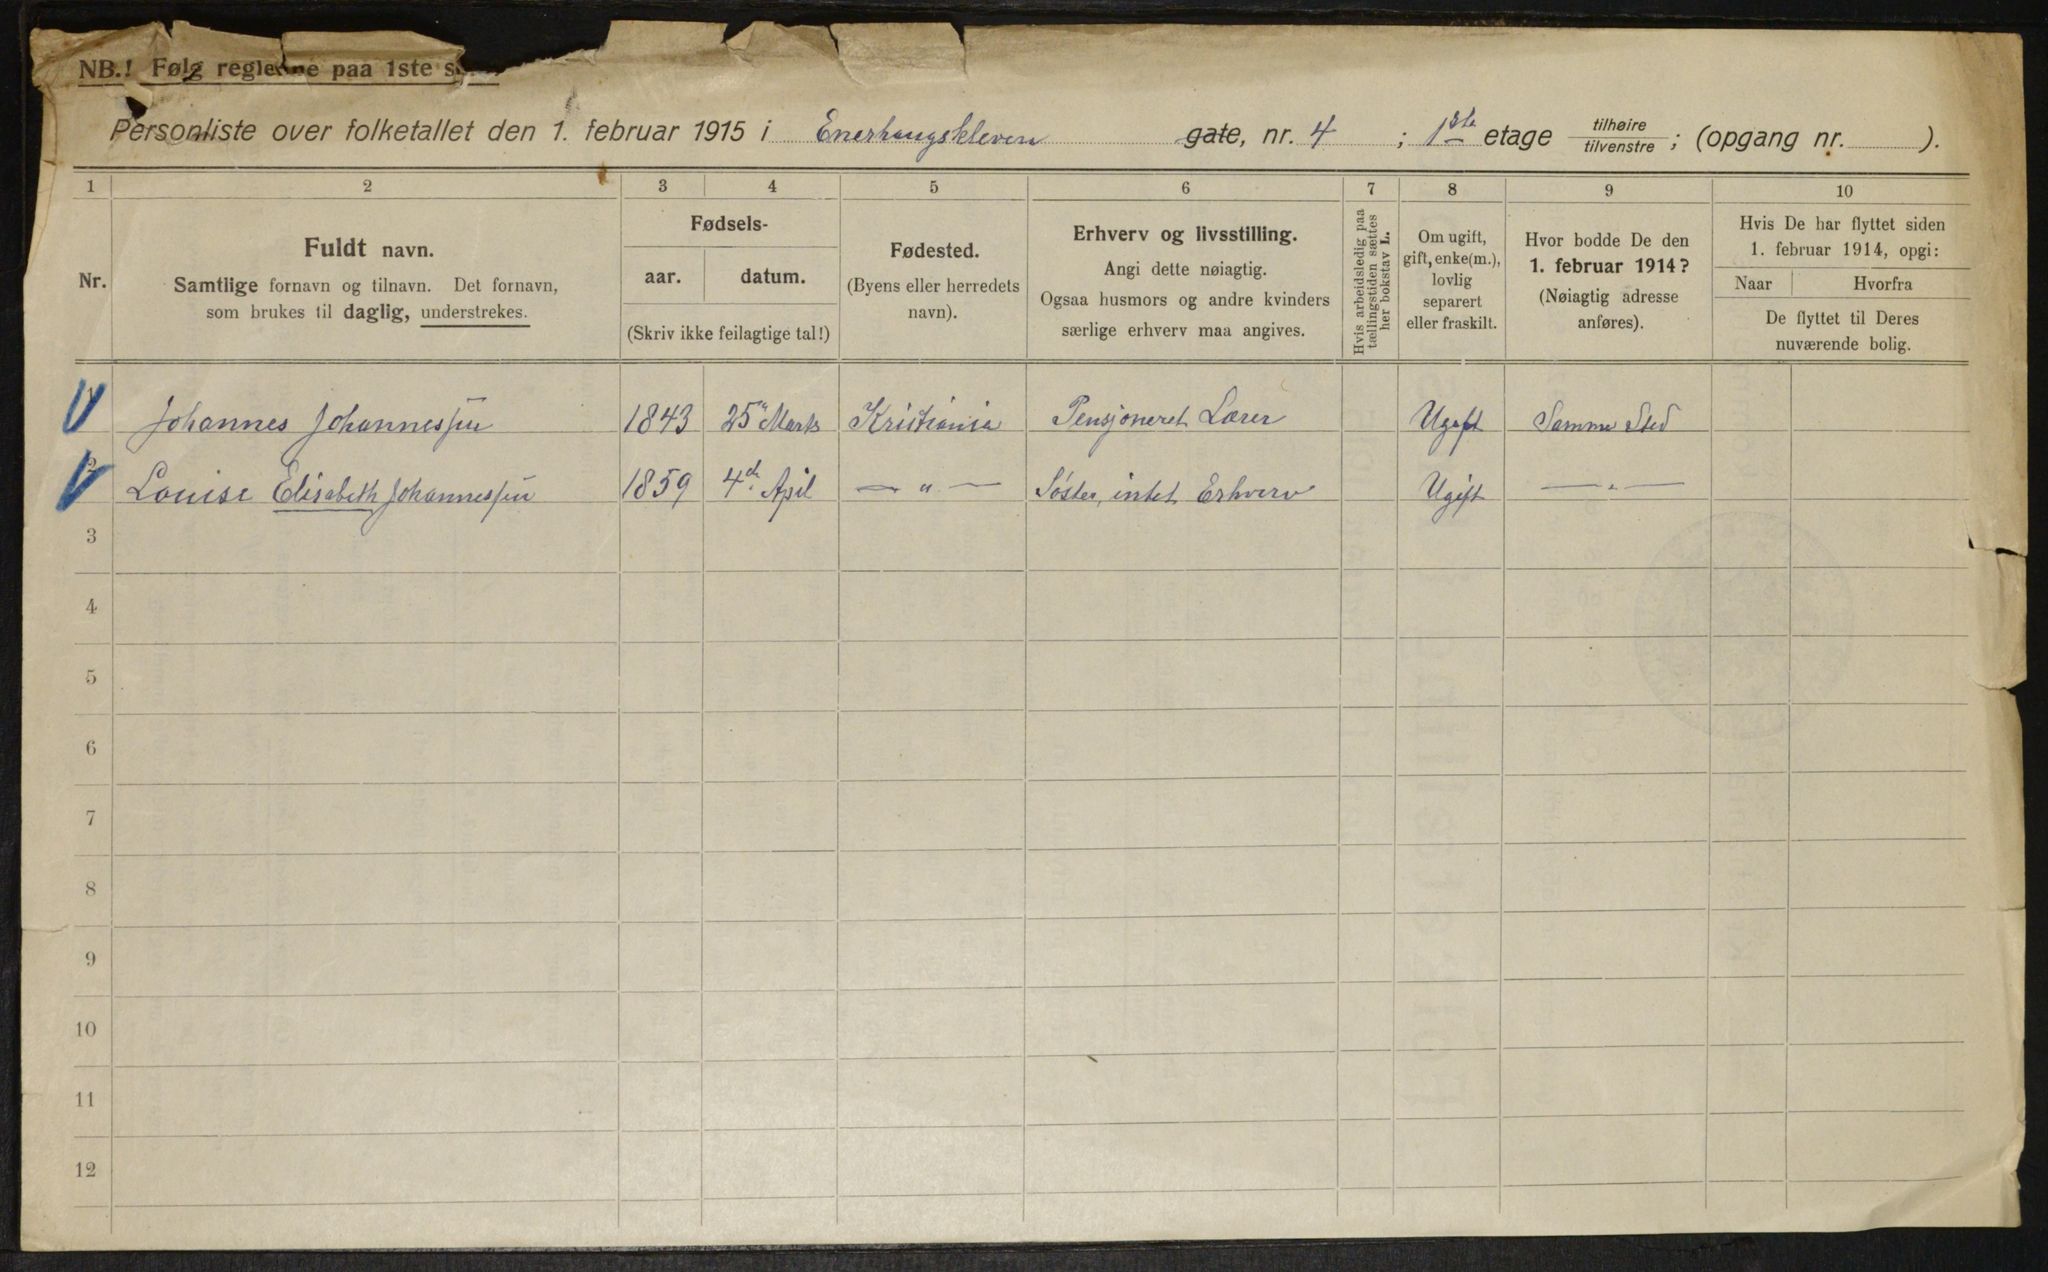 NB.! Følg reglerne paa 1ste s
Personliste over folketallet den 1. februar 1915 i Enerhaugskleven gate, nr. 4 ; 1ste etage tilhøire tilvenstre ; (opgang nr. ).
1 2 3 4 5 6 7 8 9 10
Nr.
Fuldt navn.
Samtlige fornavn og tilnavn. Det fornavn,
som brukes til daglig, understrekes.
Fødsels-
aar. datum.
(Skriv ikke feilagtige tal!)
Fødested.
(Byens eller herredets
navn).
Erhverv og livsstilling.
Angi dette nøiagtig.
Ogsaa husmors og andre kvinders
særlige erhverv maa angives.
Hvis arbeidsledig paa
tællingstiden sættes
her bokstav L.
Om ugift,
gift, enke(m.),
lovlig
separert
eller fraskilt.
Hvor bodde De den
1. februar 1914?
(Nøiagtig adresse
anføres).
Hvis De har flyttet siden
1. februar 1914, opgi:
Naar Hvorfra
De flyttet til Deres
nuværende bolig.
Johannes Johannessen 1843 25" Marts Kristiania Pensjoneret Lærer Ugift Samme Sted
Louise Elisabeth Johannessen 1859 4de April — " — Søster, intet Erhverv Ugift — " —
3
4
5
6
7
8
9
10
11
12